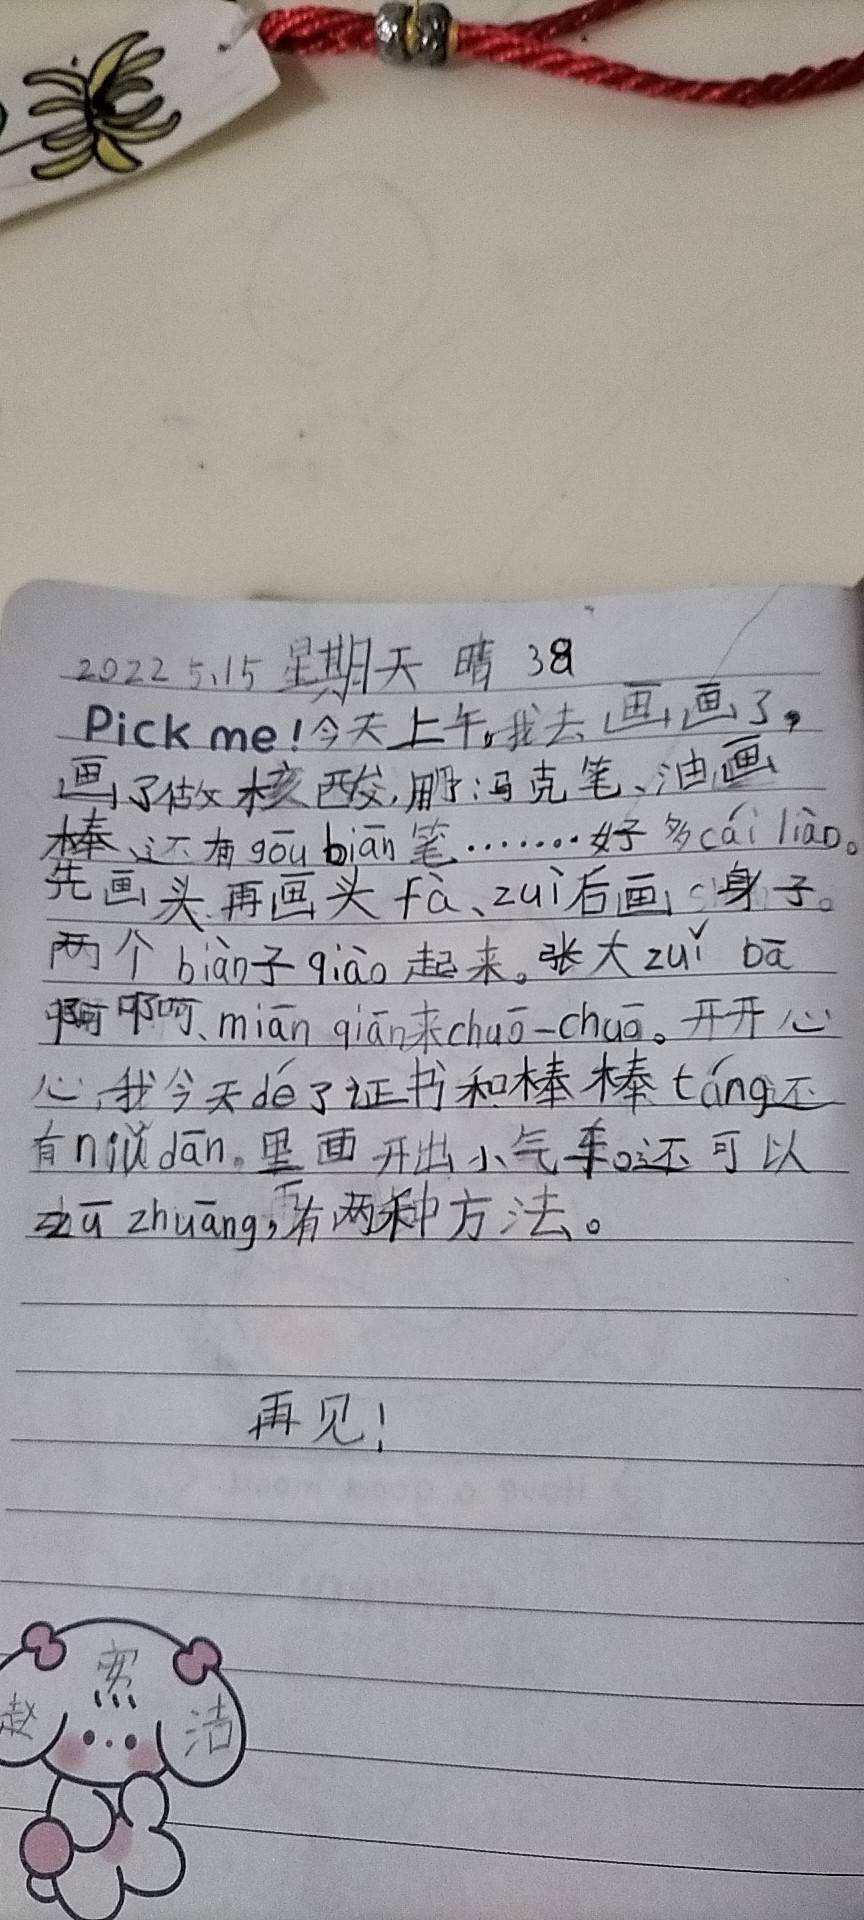 2022 5.15 星期天 晴 38
Pick me!今天上午,我去画画了,
画了做核酸,用了:马克笔、油画
棒、还有gōu biān笔……好多cái liào。
先画头、再画头fà、zuì后画身子。
两个biàn子qiào起来。张大zuǐ bā
啊啊啊、miān qiān来chuō-chuō。开开心
心,我今天dé了证书和棒棒táng还
有niǔ dān。里面开出小气车。还可以
zū zhuāng,有两种方法。
再见!
赵 洁